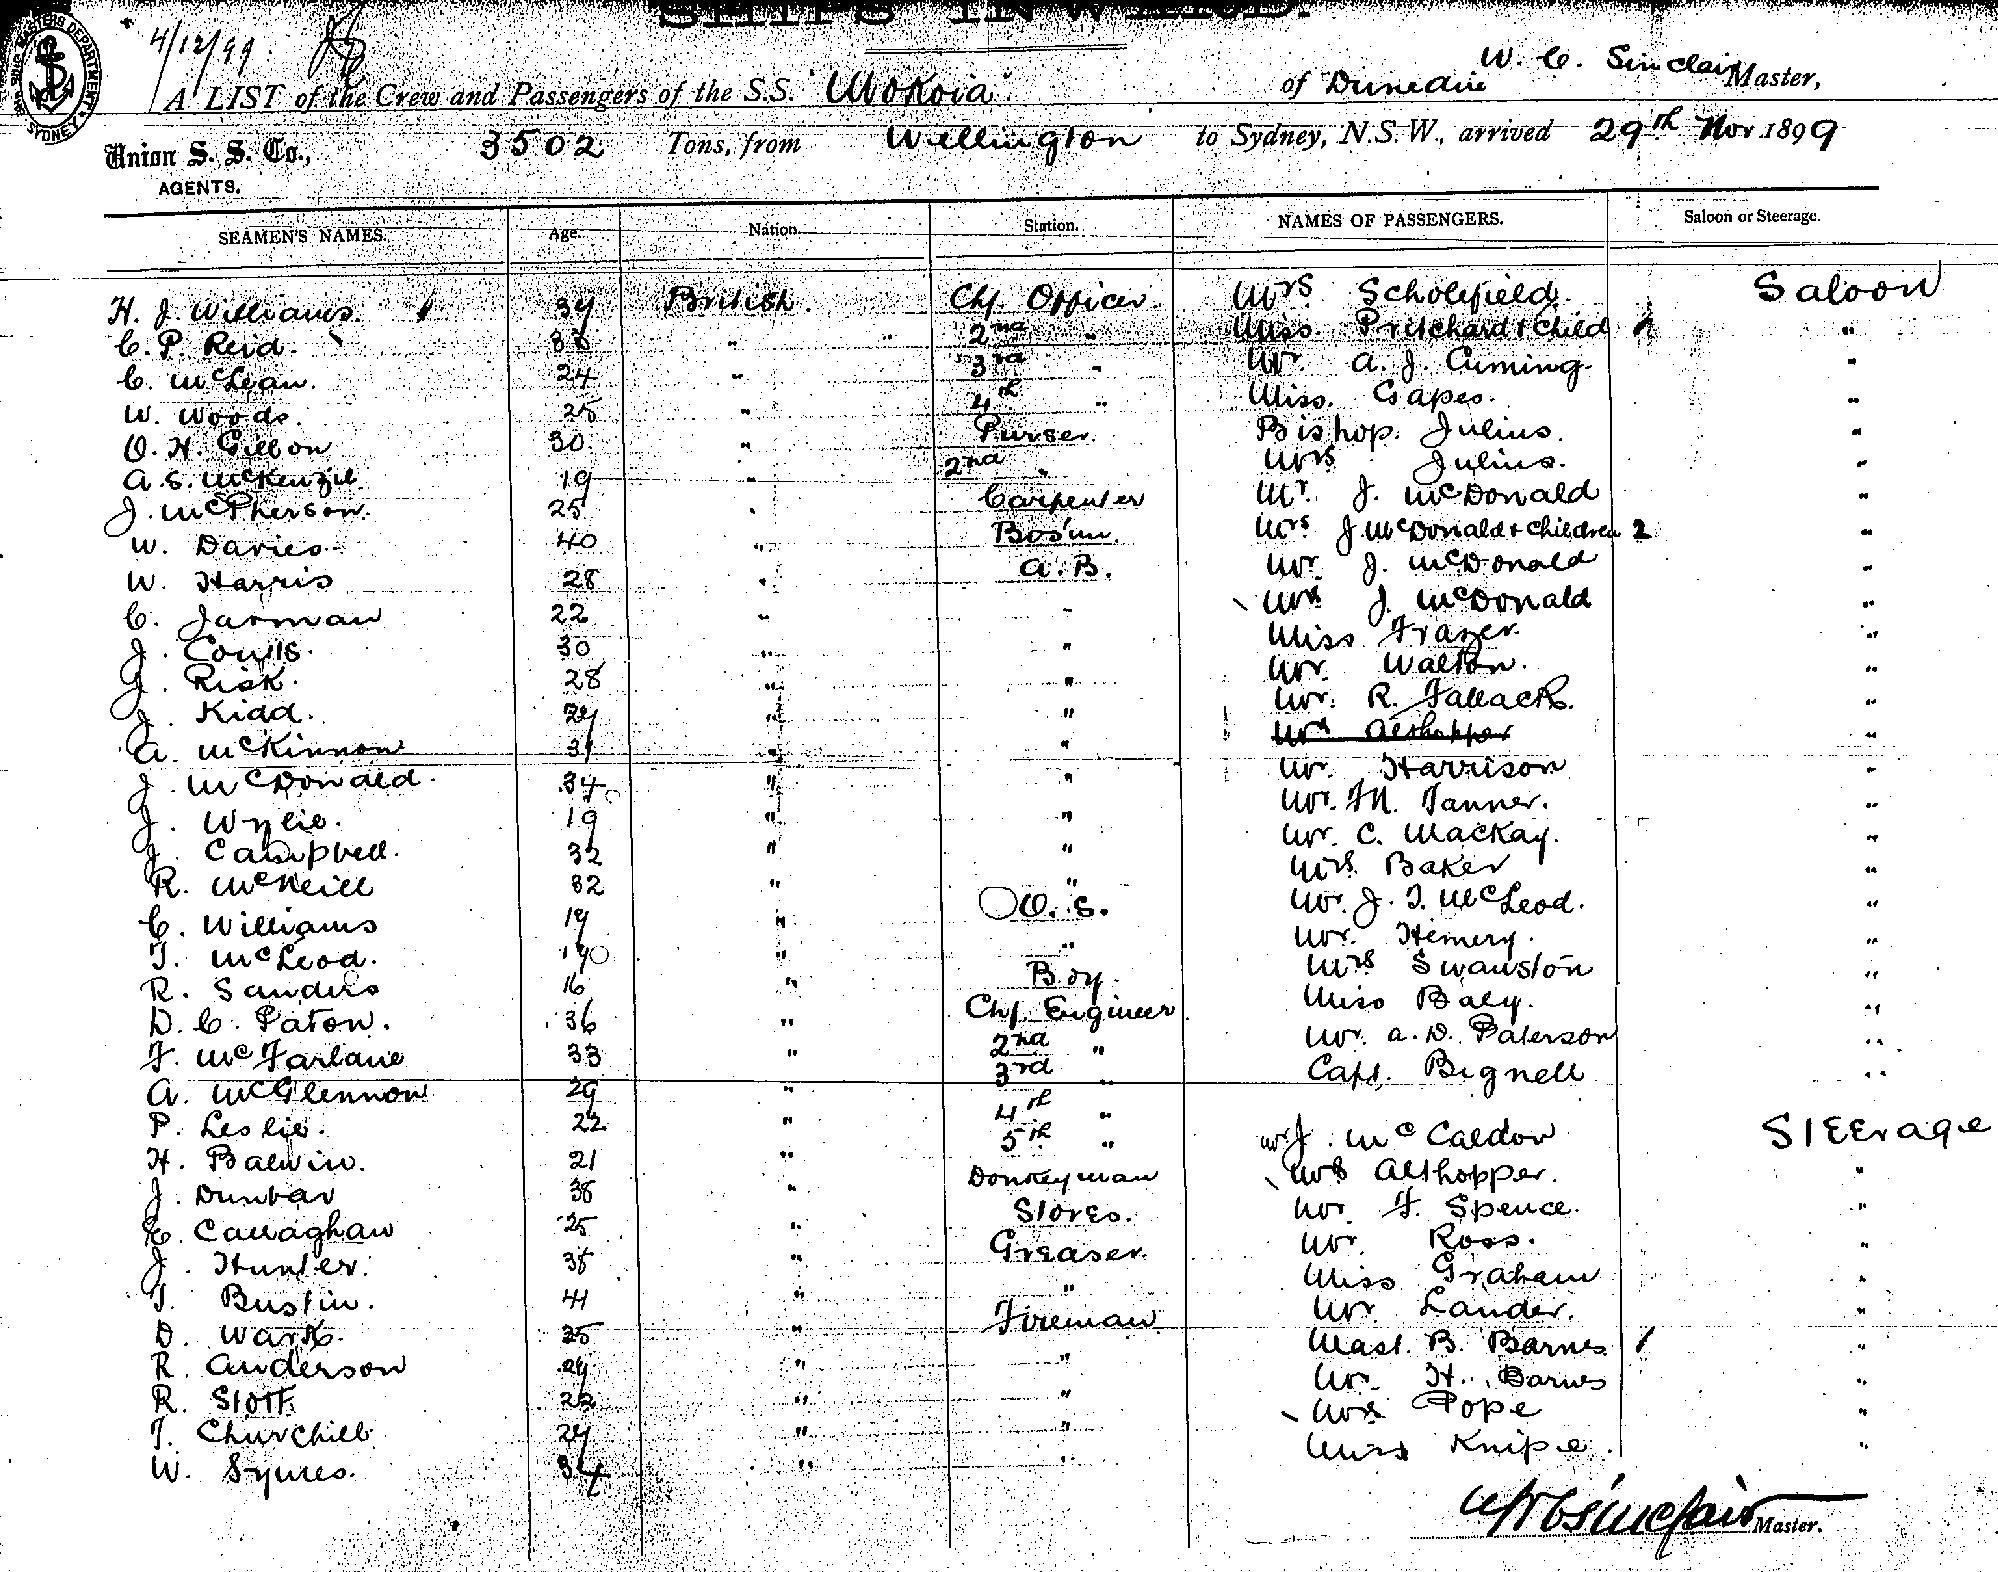 SHIPS INWARD.
SHIPPING MASTERS DEPARTMENT SYDNEY
4/12/99
W. C. Sinclair Master,
A LIST of the Crew and Passengers of the S.S. "Mokoia" of Dunedin
Union S. S. Co., 3502 Tons, from Wellington to Sydney, N.S.W., arrived 29th Nov 1899
AGENTS.
SEAMEN'S NAMES. Age. Nation. Station. NAMES OF PASSENGERS. Saloon or Steerage.
H. J. Williams. 39 British. Chf. Officer Mrs Scholefield. Saloon
C. P. Reid. " 2nd " Miss. Pritchard & Child "
C. McLean. 24 " 3rd " Mr. A. J. Cuming. "
W. Woods. 25 " 4th " Miss. Gapes. "
O. H. Gibbon 30 " Purser. Bishop. Julius. "
A. S. McKenzie 19 " 2nd " Mrs Julius. "
J. McPherson. 25 " Carpenter Mr. J. McDonald "
W. Davies. 40 " Bos'un. Mrs J McDonald & Children 2 "
W. Harris 28 " A. B. Mr. J. McDonald "
C. Jarman 22 " " Mrs J. McDonald "
J. Coutts. 30 " " Miss Frazer. "
J. Risk. 28 " " Mr. Walton. "
J. Kidd. 29 " " Mr. R. Tallack. "
A. McKinnon 31 " " Mrs Althopper "
J. McDonald. 34 " " Mr. Harrison "
J. Wylie. 19 " " Mr. M. Tanner. "
J. Campbell. 32 " " Mr. C. MacKay. "
R. McNeill 32 " " Mrs Baker "
C. Williams 19 " O. S. Mr. J. T. McLeod. "
T. McLeod. 19 " " Mr. Hemery. "
R. Sanders 16 " Boy. Mrs Swanston "
D. C. Paton. 36 " Chf. Engineer Miss Baly. "
F. McFarlane 33 " 2nd " Mr. A. D. Paterson "
A. McGlennon 29 " 3rd " Capt. Bignell "
P. Leslie. 22 " 4th "
H. Balwin. 21 " 5th " Mr J. McCaldon Steerage
J. Dunbar 38 " Donkeyman Mrs Althopper. "
C. Callaghan 25 " Stores. Mr. F. Spence. "
J. Hunter. 38 " Greaser. Mr. Ross. "
T. Bustin. 41 " " Miss Graham "
D. Wark. 25 " Fireman Mr. Lander. "
R. Anderson 29 " " Mast. B. Barnes 1 "
R. Stott. 22 " " Mr. H. Barnes "
T. Churchill 29 " " Mrs Pope "
W. Symes. 34 " " Miss Knipe. "
W C Sinclair Master.